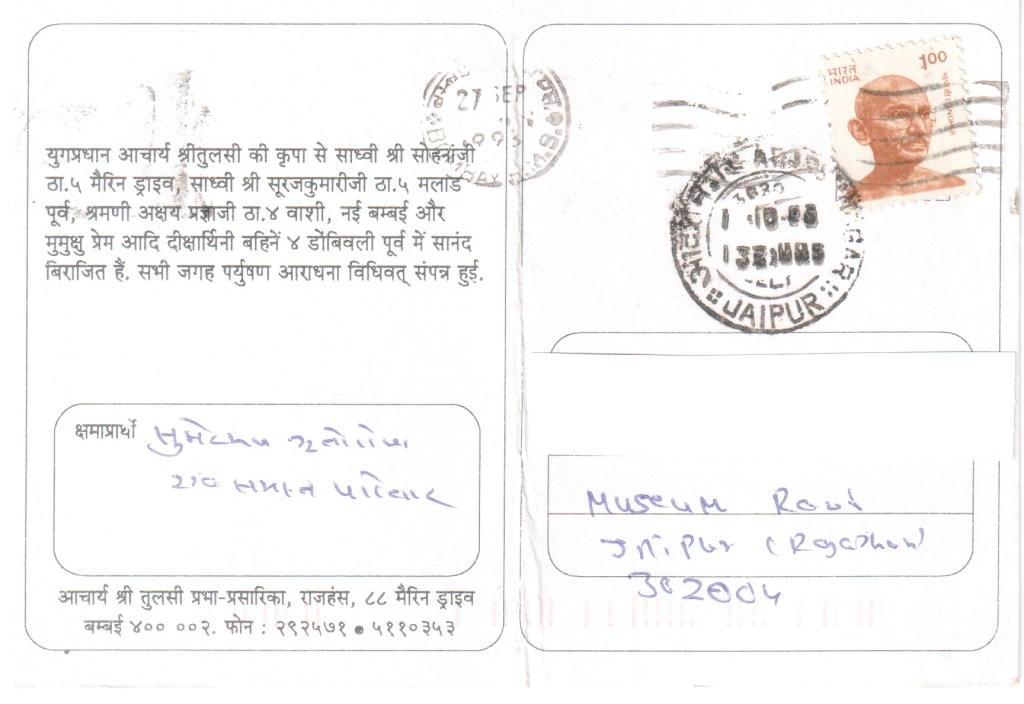 युगप्रधान आचार्य श्रीतुलसी की कृपा से साध्वी श्री सोहनांजी
ठा.५ मैरिन ड्राइव, साध्वी श्री सूरजकुमारीजी ठा.५ मलाड
पूर्व, श्रमणी अक्षय प्रज्ञाजी ठा.४ वाशी, नई बम्बई और
मुमुक्षु प्रेम आदि दीक्षार्थिनी बहिनें ४ डोंबिवली पूर्व में सानंद
बिराजित हैं. सभी जगह पर्युषण आराधना विधिवत् संपन्न हुई.
क्षमाप्रार्थी
परिवार
आचार्य श्री तुलसी प्रभा-प्रसारिका, राजहंस, ८८ मैरिन ड्राइव
बम्बई ४०० ००२. फोन : २९२५७१ • ५११०३५३
27 SEP
भारत
INDIA
1.00
JAIPUR
Museum Road
Jaipur (Rajasthan)
302004